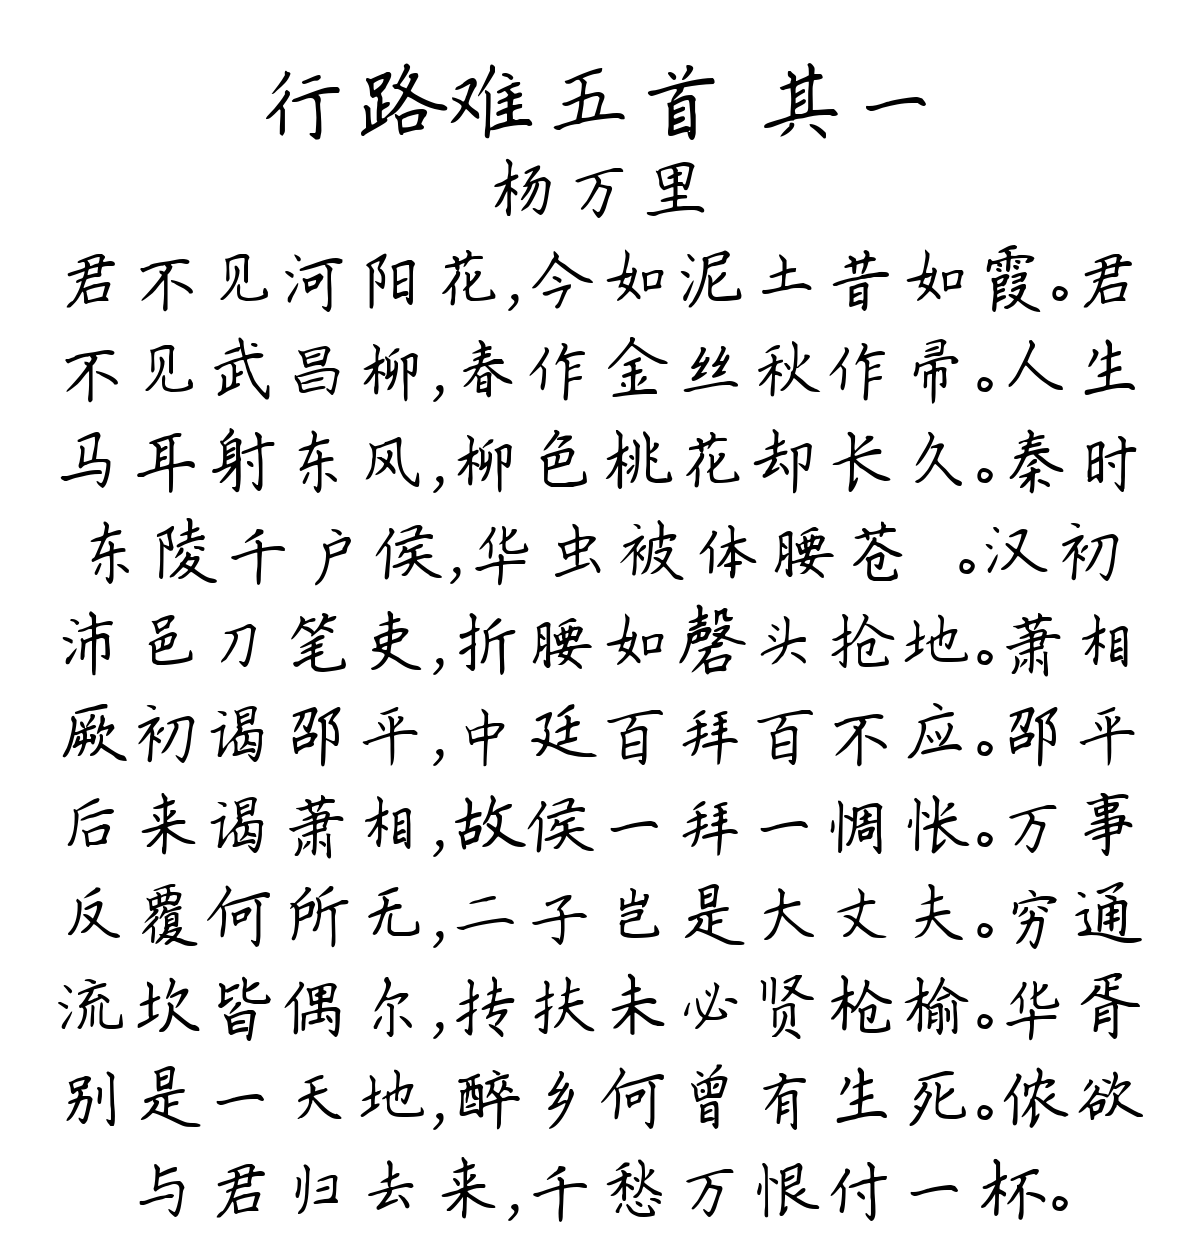 行路难五首 其一
杨万里
君不见河阳花,今如泥土昔如霞。君
不见武昌柳,春作金丝秋作帚。人生
马耳射东风,柳色桃花却长久。秦时
东陵千户侯,华虫被体腰苍 。汉初
沛邑刀笔吏,折腰如磬头抢地。萧相
厥初谒邵平,中廷百拜百不应。邵平
后来谒萧相,故侯一拜一惆怅。万事
反覆何所无,二子岂是大丈夫。穷通
流坎皆偶尔,抟扶未必贤枪榆。华胥
别是一天地,醉乡何曾有生死。侬欲
与君归去来,千愁万恨付一杯。